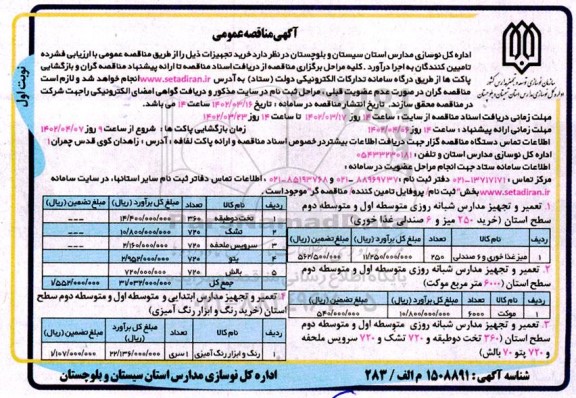 آگهی مناقصه عمومی
نوبت اول
سازمان نوسازی، توسعه و تجهیز مدارس کشور
اداره کل نوسازی مدارس استان سیستان و بلوچستان
اداره کل نوسازی مدارس استان سیستان و بلوچستان در نظر دارد خرید تجهیزات ذیل را از طریق مناقصه عمومی با ارزیابی فشرده
تامیین کنندگان به اجرا درآورد. کلیه مراحل برگزاری مناقصه از دریافت اسناد مناقصه تا ارائه پیشنهاد مناقصه گران و بازگشایی
پاکت ها از طریق درگاه سامانه تدارکات الکترونیکی دولت (ستاد) به آدرس www.setadiran.ir انجام خواهد شد و لازم است
مناقصه گران در صورت عدم عضویت قبلی، مراحل ثبت نام در سایت مذکور و دریافت گواهی امضای الکترونیکی را جهت شرکت
در مناقصه محقق سازند. تاریخ انتشار مناقصه در سامانه : تاریخ ۱۴۰۲/۰۳/۱۶ ساعت ۱۴ می باشد.
مهلت زمانی دریافت اسناد مناقصه از سایت : ساعت ۱۴ روز ۱۴۰۲/۰۳/۱۷ تا ساعت ۱۴ روز ۱۴۰۲/۰۳/۲۳
مهلت زمانی ارائه پیشنهاد : ساعت ۱۴ روز ۱۴۰۲/۰۴/۰۶ زمان بازگشایی پاکت ها : شروع از ساعت ۹ روز ۱۴۰۲/۰۴/۰۷
اطلاعات تماس دستگاه مناقصه گزار جهت دریافت اطلاعات بیشتر در خصوص اسناد مناقصه و ارائه پاکت لفافه : آدرس : زاهدان کوی قدس چمران ۱
اداره کل نوسازی مدارس استان و تلفن : ۰۵۴۳۳۲۳۰۱۸۱
اطلاعات سامانه ستاد جهت انجام مراحل عضویت در سامانه :
مرکز تماس : ۱۳۷۱۷۱۷۱-۰۲۱ دفتر ثبت نام : ۸۸۹۶۹۷۳۷-۰۲۱ و ۸۵۱۹۳۷۶۸-۰۲۱ اطلاعات تماس دفاتر ثبت نام سایر استانها، در سایت سامانه
www.setadiran.ir بخش "ثبت نام/ پروفایل تامین کننده/ مناقصه گر" موجود است.
۱. تعمیر و تجهیز مدارس شبانه روزی متوسطه اول و متوسطه دوم
سطح استان (خرید ۲۵۰ میز و ۶ صندلی غذا خوری)
ردیف نام کالا تعداد مبلغ کل برآورد (ریال) مبلغ تضمین (ریال)
۱ میز غذا خوری و ۶ صندلی ۲۵۰ ۱۱/۲۵۰/۰۰۰/۰۰۰ ۵۶۲/۵۰۰/۰۰۰
۲. تعمیر و تجهیز مدارس شبانه روزی متوسطه اول و متوسطه دوم
سطح استان (۶۰۰۰ متر مربع موکت)
ردیف نام کالا تعداد مبلغ کل برآورد (ریال) مبلغ تضمین (ریال)
۱ موکت ۶۰۰۰ ۱۰/۸۰۰/۰۰۰/۰۰۰ ۵۴۰/۰۰۰/۰۰۰
۳. تعمیر و تجهیز مدارس شبانه روزی متوسطه اول و متوسطه دوم
سطح استان (۳۶۰ تخت دوطبقه و ۷۲۰ تشک و ۷۲۰ سرویس ملحفه
و ۷۲۰ پتو ۷۰ بالش)
ردیف نام کالا تعداد مبلغ کل برآورد (ریال) مبلغ تضمین (ریال)
۱ تخت دوطبقه ۳۶۰ ۱۴/۴۰۰/۰۰۰/۰۰۰ ---
۲ تشک ۷۲۰ ۱۰/۸۰۰/۰۰۰/۰۰۰ ---
۳ سرویس ملحفه ۷۲۰ ۲/۱۶۰/۰۰۰/۰۰۰ ---
۴ پتو ۷۲۰ ۲/۹۵۲/۰۰۰/۰۰۰
۵ بالش ۷۲۰ ۷۲۰/۰۰۰/۰۰۰
جمع کل ۳۱/۰۳۲/۰۰۰/۰۰۰ ۱/۵۵۲/۰۰۰/۰۰۰
۴. تعمیر و تجهیز مدارس ابتدایی و متوسطه اول و متوسطه دوم سطح
استان (خرید رنگ و ابزار رنگ آمیزی)
ردیف نام کالا تعداد مبلغ کل برآورد (ریال) مبلغ تضمین (ریال)
۱ رنگ و ابزار رنگ آمیزی ۱ سری ۲۲/۱۳۶/۰۰۰/۰۰۰ ۱/۱۰۷/۰۰۰/۰۰۰
شناسه آگهی : ۱۵۰۸۸۹۱ م الف / ۲۸۳
اداره کل نوسازی مدارس استان سیستان و بلوچستان